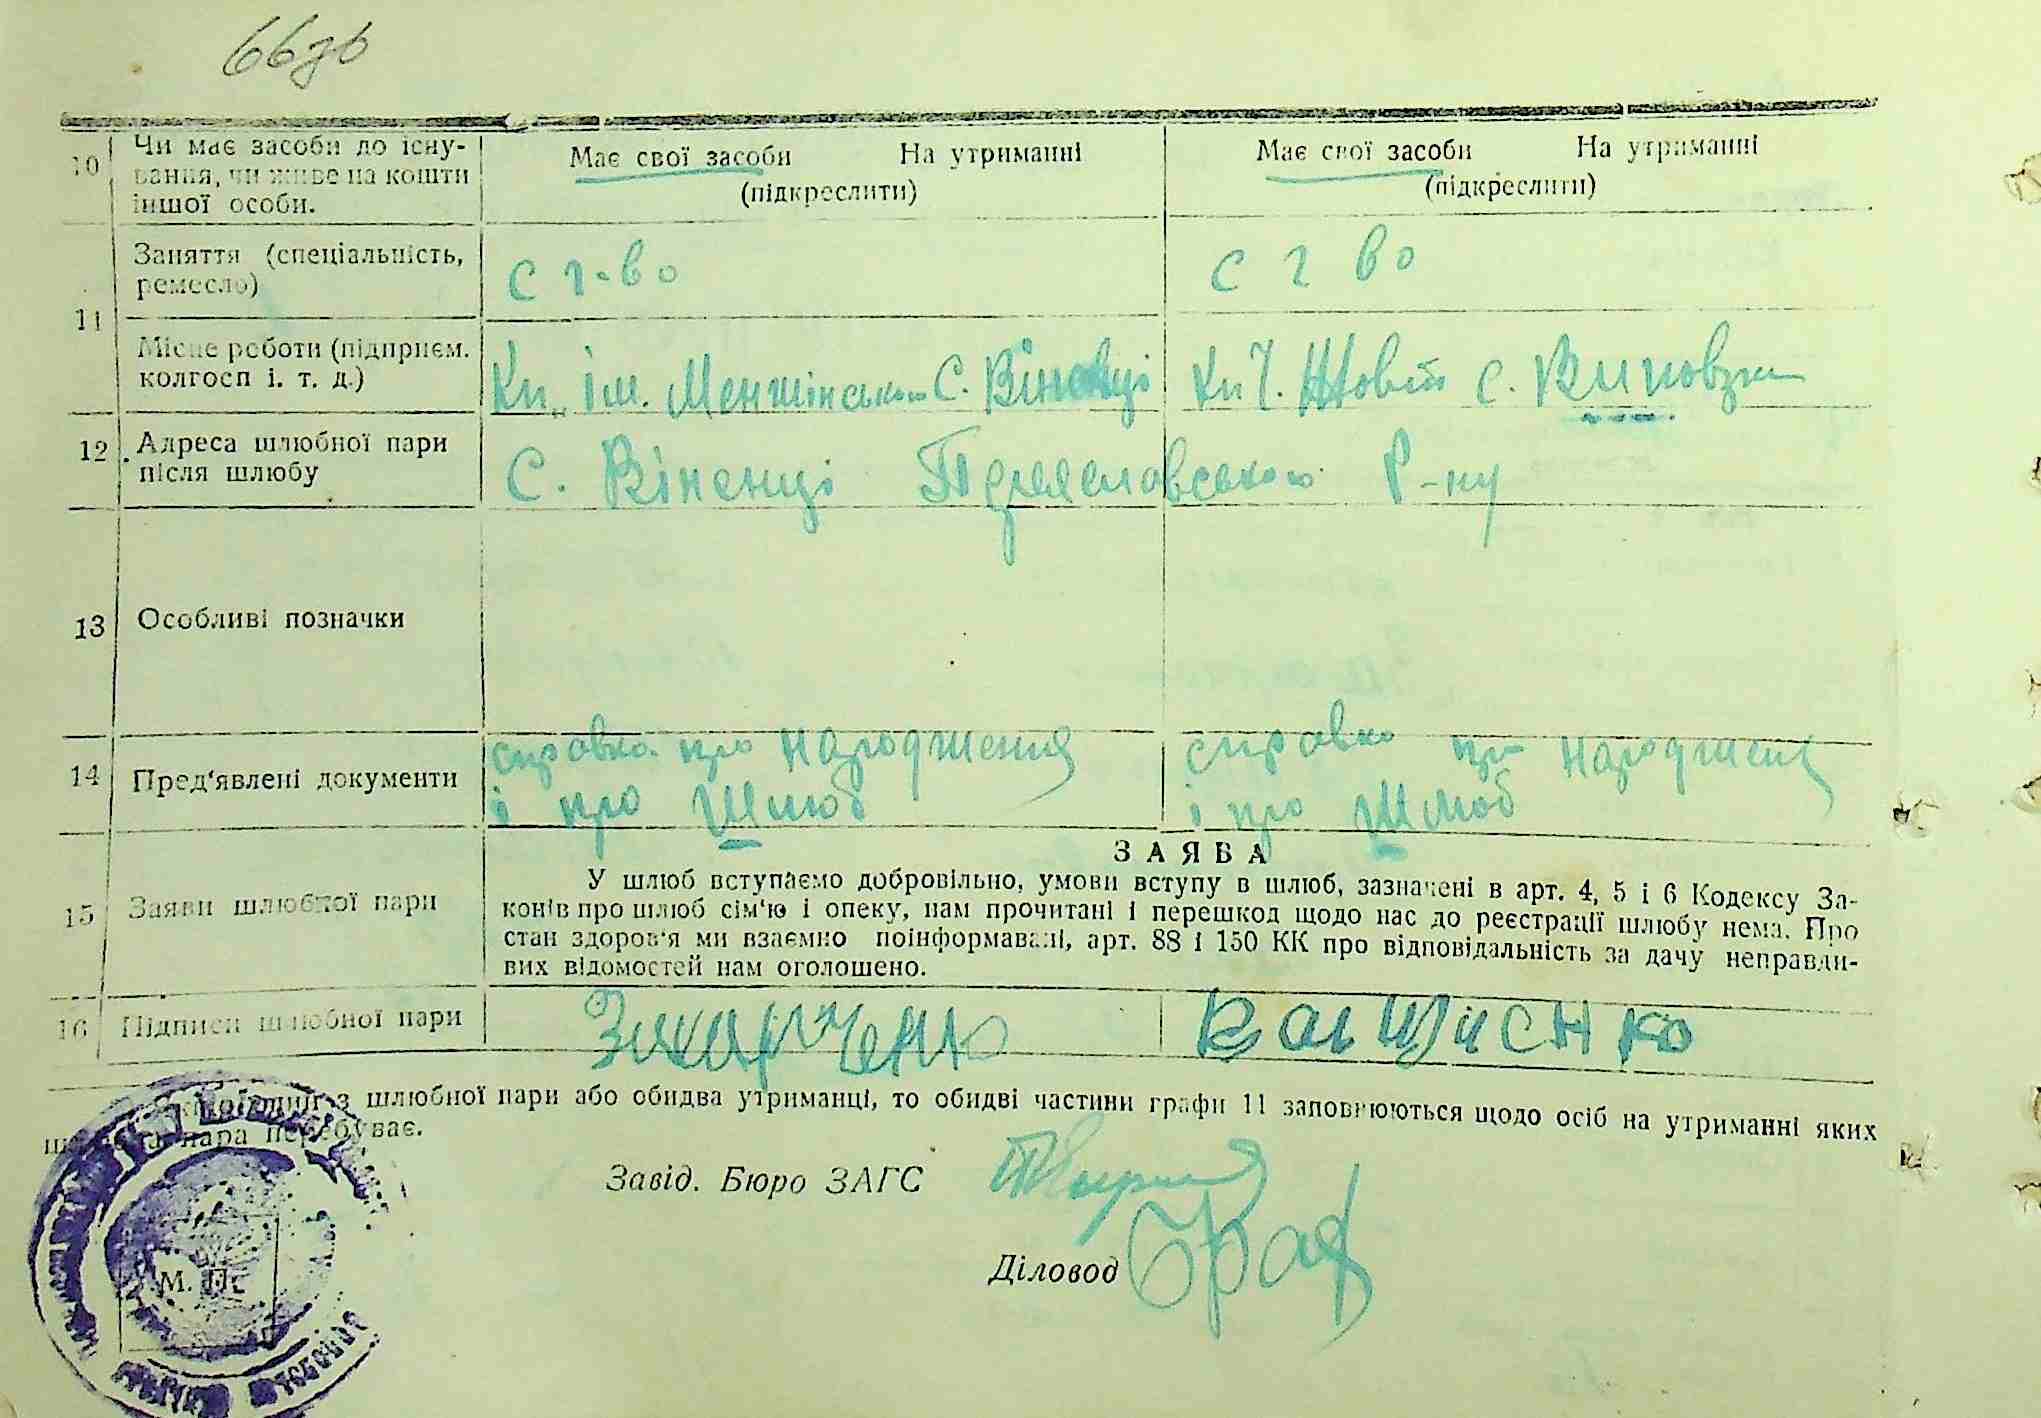 66зв
10 Чи має засоби до існу-
вання, чи живе на кошти
іншої особи.
Має свої засоби На утриманні
(підкреслити)
Має свої засоби На утриманні
(підкреслити)
11
Заняття (спеціальність,
ремесло)
с г-во
с г во
Місце роботи (підприєм.
колгосп і. т. д.)
Кп „ ім. Менжінського С. Віненці
Кп Ч. Жовт. с.
12 Адреса шлюбної пари
після шлюбу
С. Віненці Переяславського Р-ну
13 Особливі позначки
14 Пред'явлені документи
справка про народження
і про Шлюб
справка про народження
і про Шлюб
15 Заяви шлюбної пари
ЗАЯВА
У шлюб вступаємо добровільно, умови вступу в шлюб, зазначені в арт. 4, 5 і 6 Кодексу За-
конів про шлюб сім'ю і опеку, нам прочитані і перешкод щодо нас до реєстрації шлюбу нема. Про
стан здоров'я ми взаємно поінформавані, арт. 88 і 150 КК про відповідальність за дачу неправди-
вих відомостей нам оголошено.
16 Підписи шлюбної пари
Захарченко
з шлюбної пари або обидва утриманці, то обидві частини графи 11 заповнюються щодо осіб на утриманні яких
пара перебуває.
Завід. Бюро ЗАГС
Діловод
М. П.